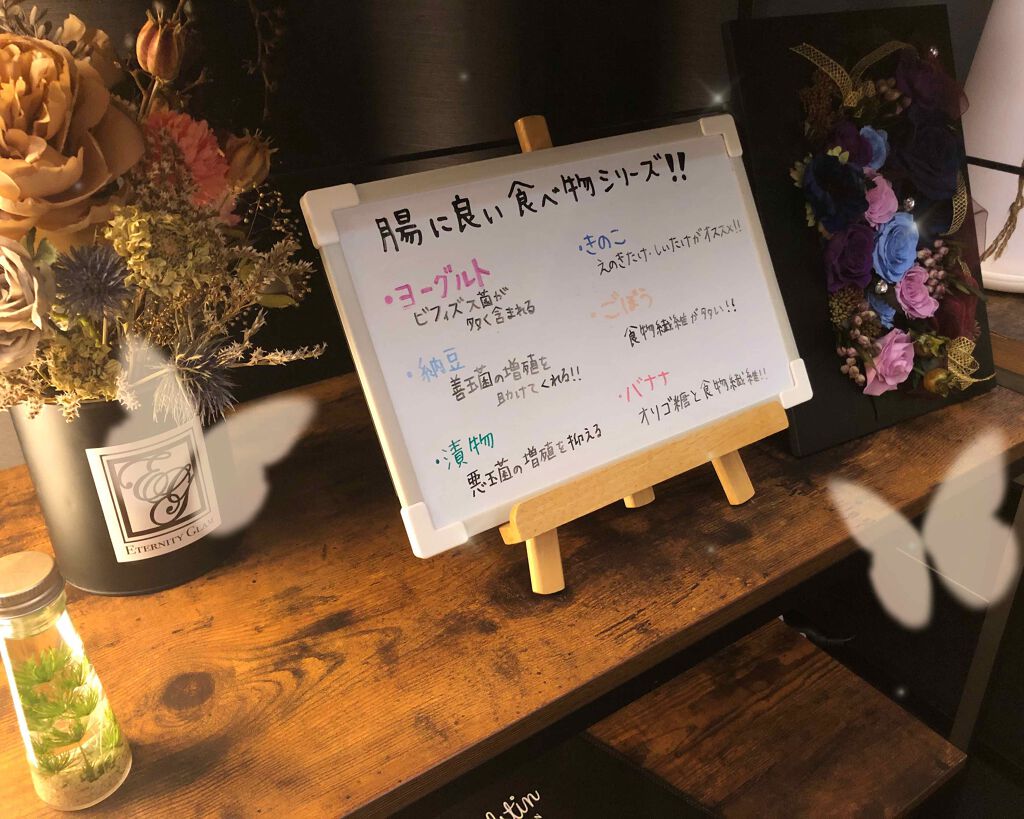 腸に良い食べ物シリーズ!!
・ヨーグルト
ビフィズス菌が
多く含まれる
・納豆
善玉菌の増殖を
助けてくれる!!
・漬物
悪玉菌の増殖を抑える
・きのこ
えのきたけ・しいたけがオススメ!!
・ごぼう
食物繊維が多い!!
・バナナ
オリゴ糖と食物繊維!!
EG
ETERNITY GLAM